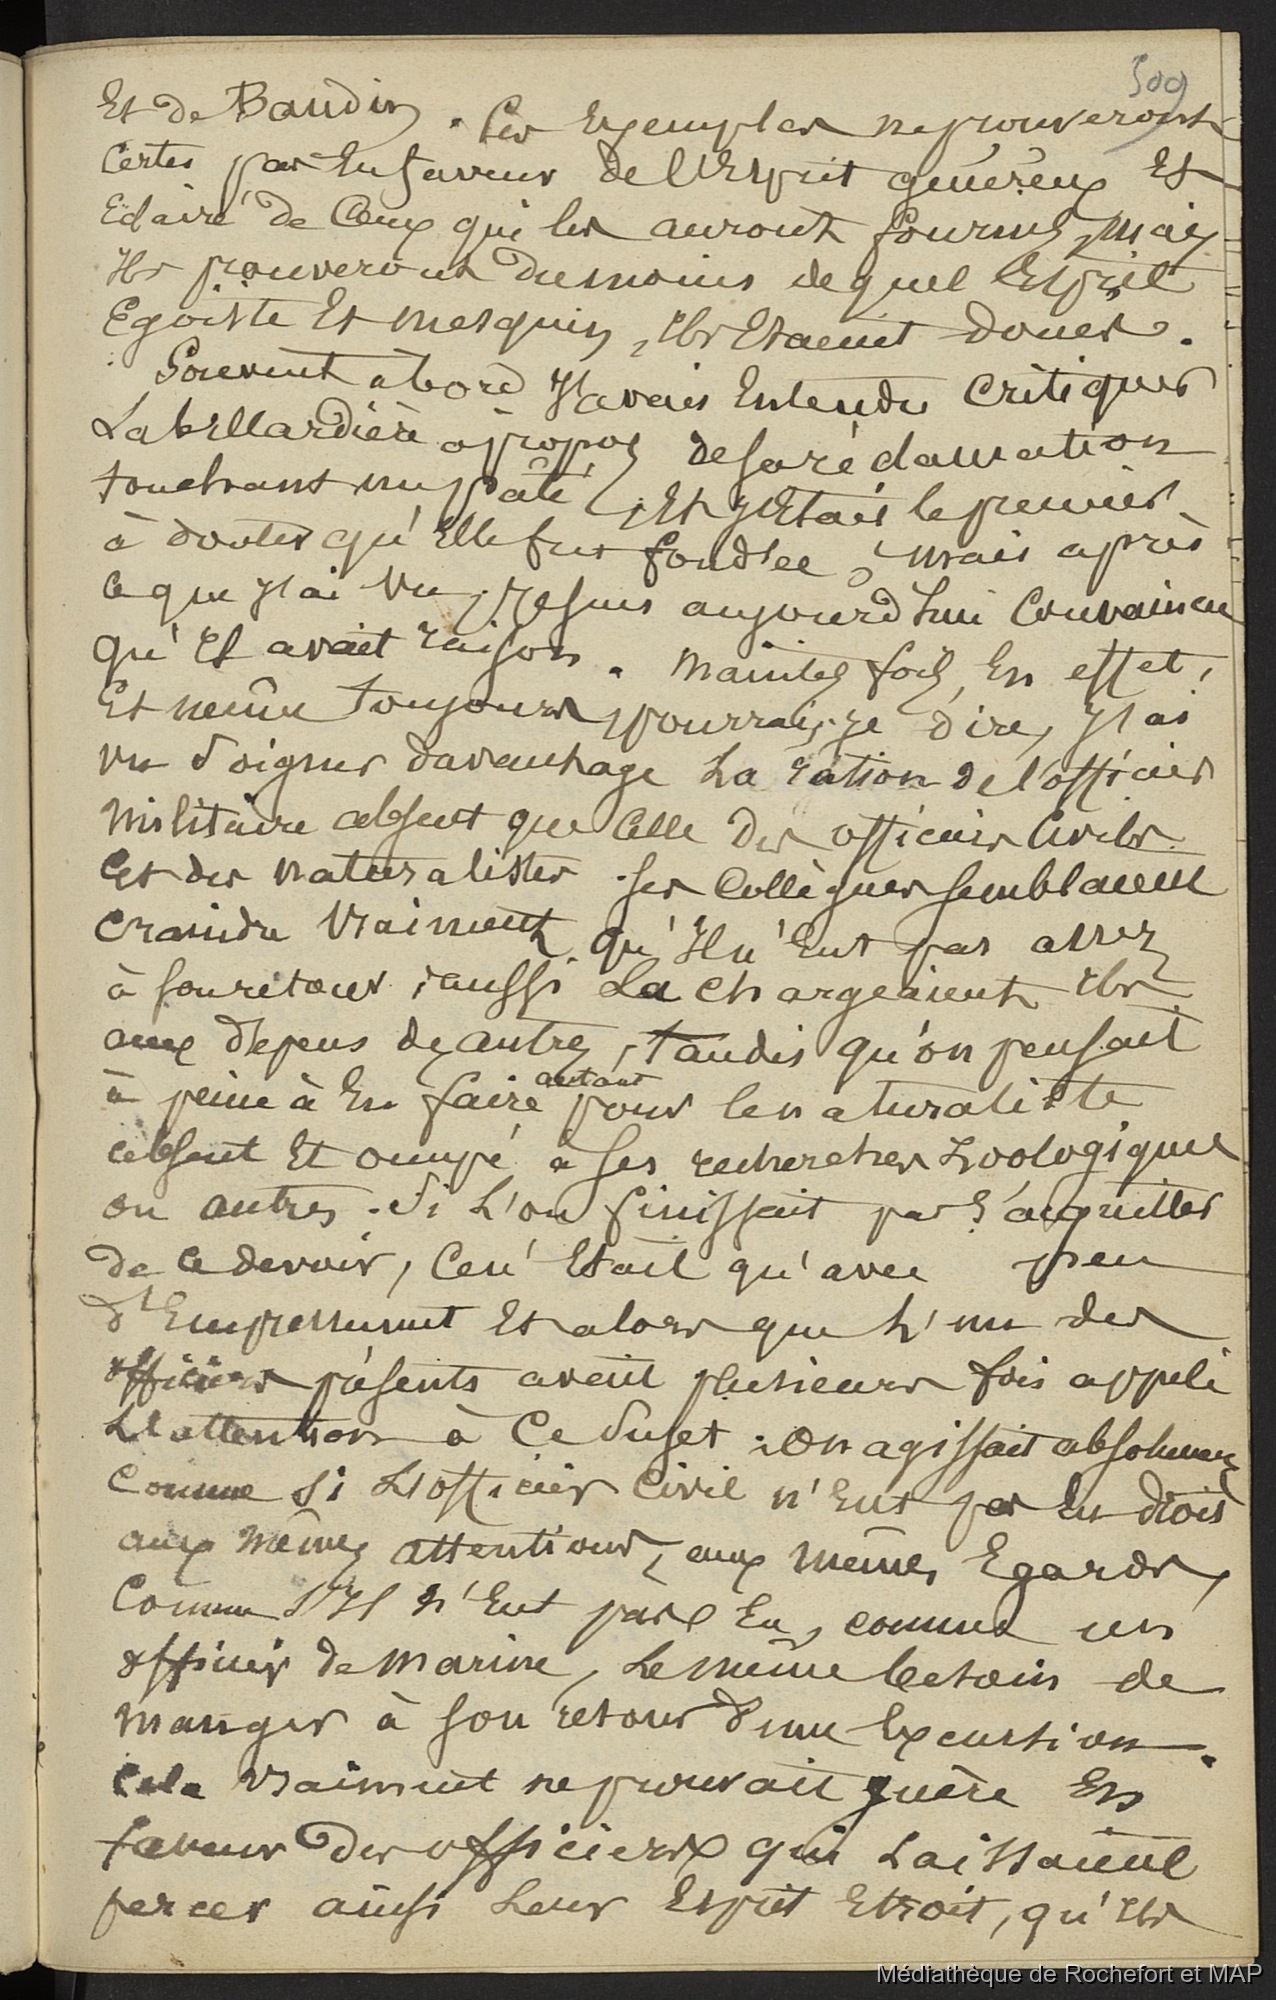 309
Et de Baudin. Ces Exemples ne prouveront
Certes pas En faveur de l'Esprit généreux Et
Eclairé de Ceux qui les auront fournis, mais
Ils prouveront du moins de quel Esprit
Egoïste Et mesquin, Ils Etaient doués.
Souvent à bord J'avais Entendu Critiquer
Labillardière à propos de sa réclamation
touchant un pâté, Et J'Etais le premier
à douter qu'Elle fut fondée, mais après
ce que J'ai Vu, Je suis aujourd'hui Convaincu
qu'Il avait raison. Maintes fois, En effet,
Et même toujours, pourrais-je dire, J'ai
vu soigner davantage La ration de l'officier
militaire absent que Celle des officiers Civils
Et des naturalistes. Ses Collègues semblaient
Craindre Vraiment qu'Il n'Eut pas assez
à son retour ; aussi La chargeaient Ils
aux dépens des autres, tandis qu'on pensait
à peine à En faire autant pour le naturaliste
absent Et occupé à ses recherches Zoologiques
ou autres. Si L'on finissait par s'acquitter
de Ce devoir, Ce n'Etait qu'avec peu
d'Empressement Et alors que L'un des
officiers présents avait plusieurs fois appelé
L'attention à Ce sujet. On agissait absolument
Comme si L'officier Civil n'Eut pas Eu droit
aux mêmes attentions, aux mêmes Egards,
Comme s'Il n'Eut pas Eu, comme un
officier de marine, Le même besoin de
manger à son retour d'une Excursion.
Cela Vraiment ne prouvait guère En
faveur des officiers qui Laissaient
percer ainsi Leur Esprit Etroit, qu'Ils
Médiathèque de Rochefort et MAP